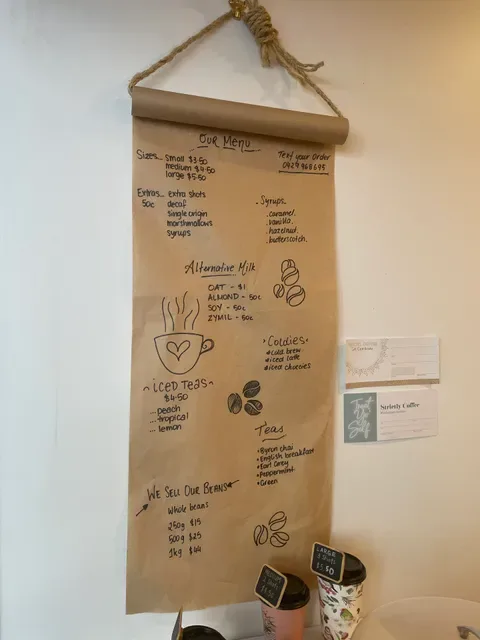 Our Menu
Sizes... small $3.50
medium $4.50
large $5.50
Text your Order
Extras... extra shots
50c decaf
single origin
marshmallows
syrups
. Syrups
. caramel.
. vanilla.
. hazelnut.
. butterscotch.
Alternative Milk
OAT - $1
ALMOND - 50c
SOY - 50c
ZYMIL - 50c
Coldies
cold brew
iced latte
iced choccies
~ iced Teas ~
$4.50
... peach
... tropical
... lemon
Teas
Byron chai
English breakfast
Earl Grey
Peppermint
Green
We Sell Our Beans
Whole beans
250g $15
500g $25
1kg $44
Treat
Yo
Self
Strictly Coffee
LARGE